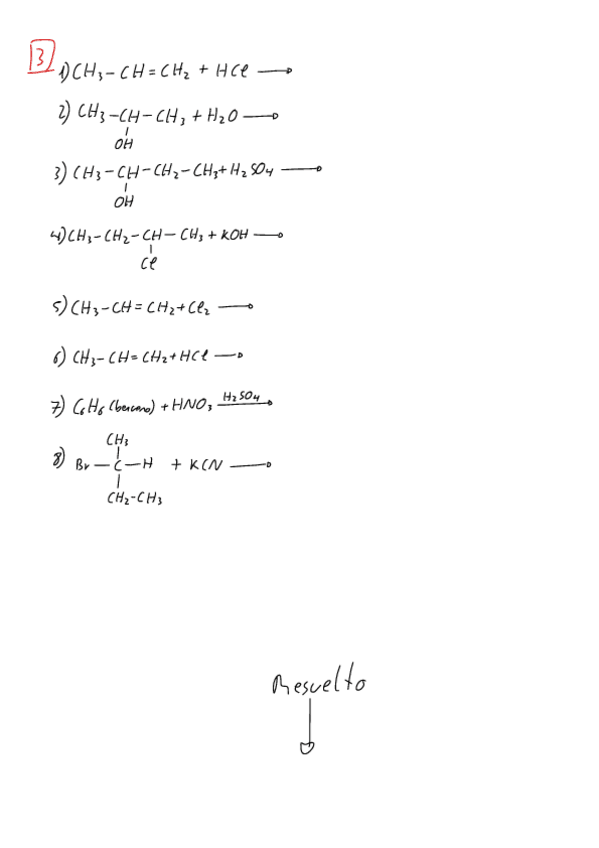 3
1) CH₃-CH=CH₂ + HCl →
2) CH₃-CH-CH₃ + H₂O →
OH
3) CH₃-CH-CH₂-CH₃ + H₂SO₄ →
OH
4) CH₃-CH₂-CH-CH₃ + KOH →
Cl
5) CH₃-CH=CH₂ + Cl₂ →
6) CH₃-CH=CH₂ + HCl →
7) C₆H₆ (benceno) + HNO₃ H₂SO₄ →
CH₃
8) Br-C-H + KCN →
CH₂-CH₃
Resuelto